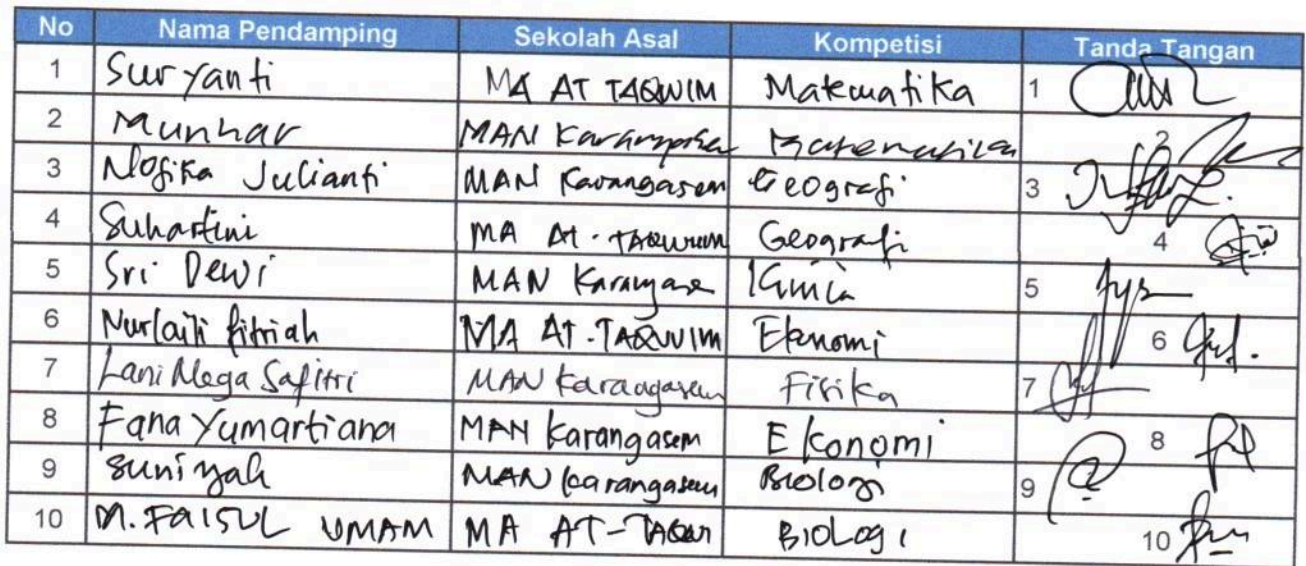 No Nama Pendamping Sekolah Asal Kompetisi Tanda Tangan
1 Suryanti MA AT TAQWIM Matematika 1
2 Munhar MAN Karangasem Matematika 2
3 Nofika Julianti MAN Karangasem Geografi 3
4 Suhartini MA At-TAQWIM Geografi 4
5 Sri Dewi MAN Karangase Kimia 5
6 Nurlaili fitriah MA AT-TAQWIM Ekonomi 6
7 Lani Mega Safitri MAN Karangasem Fisika 7
8 Fana Yumartiana MAN Karangasem Ekonomi 8
9 Suniyah MAN Karangasem Biologi 9
10 M. FAISUL UMAM MA AT- BIOLOGI 10